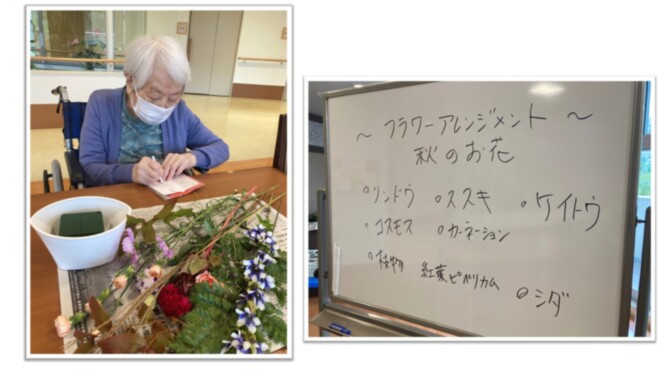 ～ フラワーアレンジメント ～
秋のお花
○リンドウ ○ススキ ○ケイトウ
○コスモス ○カーネーション
○枝物 紅葉ヒペリカム ○シダ